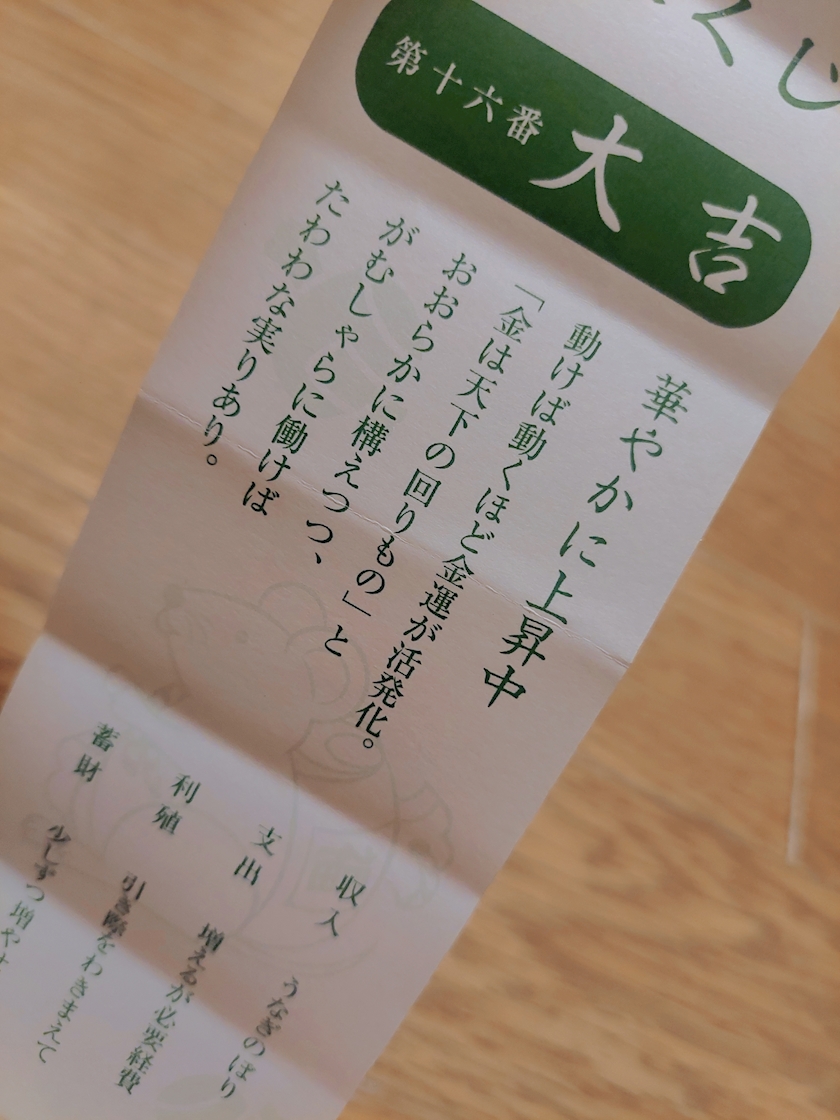 くじ
第十六番 大吉
華やかに上昇中
動けば動くほど金運が活発化。
「金は天下の回りもの」と
おおらかに構えつつ、
がむしゃらに働けば
たわわな実りあり。
収入 うなぎのぼり
支出 増えるが必要経費
利殖 引き際をわきまえて
蓄財 少しずつ増やす